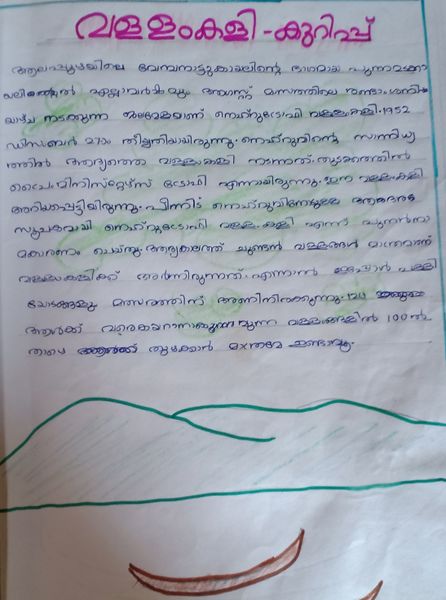 വള്ളംകളി - കുറിപ്പ്
ആലപ്പുഴയിലെ വേമ്പനാട്ടുകായലിന്റെ ഭാഗമായ പുന്നമടക്കാ
യലിൽ എല്ലാവർഷവും ആഗസ്റ്റ് മാസത്തിലെ രണ്ടാം ശനിയ
ഴ്ച നടക്കുന്ന ജലമേളയാണ് നെഹ്റുട്രോഫി വള്ളംകളി. 1952
ഡിസംബർ 27ാം തീയ്യതിയായിരുന്നു. നെഹ്റുവിന്റെ സാന്നിധ്യ
ത്തിൽ ആദ്യത്തെ വള്ളംകളി നടന്നത്. തുടക്കത്തിൽ
പ്രൈംമിനിസ്റ്റേഴ്സ് ട്രോഫി എന്നായിരുന്നു. ഈ വള്ളംകളി
അറിയപ്പെട്ടിരുന്നു. പിന്നീട് നെഹ്റുവിനോടുള്ള ആദരവ്
സൂചകമായി നെഹ്റുട്രോഫി വള്ളംകളി എന്ന് പുനർനാ
മകരണം ചെയ്തു. ആദ്യകാലത്ത് ചുണ്ടൻ വള്ളങ്ങൾ മാത്രമാണ്
വള്ളംകളിക്ക് അണിനിരന്നത്. എന്നാൽ ഇപ്പോൾ പള്ളി
യോടങ്ങളും മത്സരത്തിന് അണിനിരക്കുന്നു.
ആൾക്ക് വരെ കയറാനാകുന്ന വള്ളങ്ങളിൽ 100 ൽ
താഴെ ആൾക്ക് തുഴക്കാർ മാത്രമേ ഉണ്ടാവൂ.